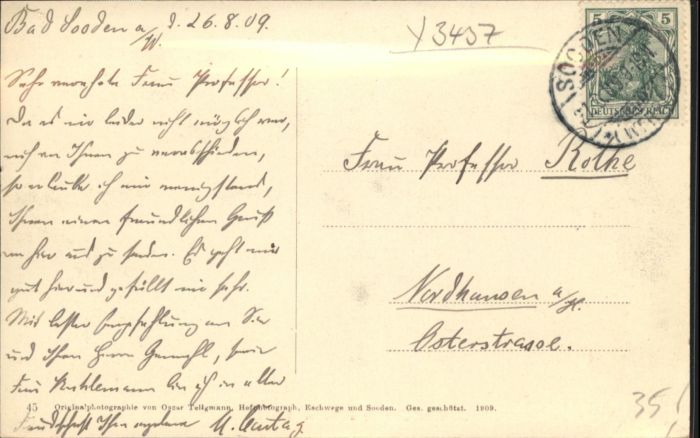 Bad Sooden a/W. d. 26.8.09.
Y 3457
5 5
DEUTSCHES REICH
SOODEN
Sehr verehrte Frau Professor!
Da es mir leider nicht möglich war,
mich von Ihnen zu verabschieden,
so erlaube ich mir wenigstens,
Ihnen einen freundlichen Gruß
von hier aus zu senden. Es geht mir
gut hier und gefällt mir sehr.
Mit bester Empfehlung an Sie
und Ihren Herrn Gemahl, sowie
Frau bin ich in aller
Freundschaft Ihre
Frau Professor Rothe
Nordhausen a/H.
Osterstrasse.
45 Originalphotographie von Oscar Tellgmann, Hofphotograph, Eschwege und Sooden. Ges. geschützt. 1909.
35!